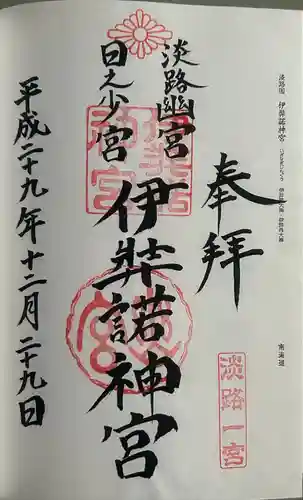 淡路國 伊弉諾神宮
南海道
奉拝
淡路一宮
淡路幽宮
日之少宮
伊弉諾神宮
平成二十九年十二月二十九日